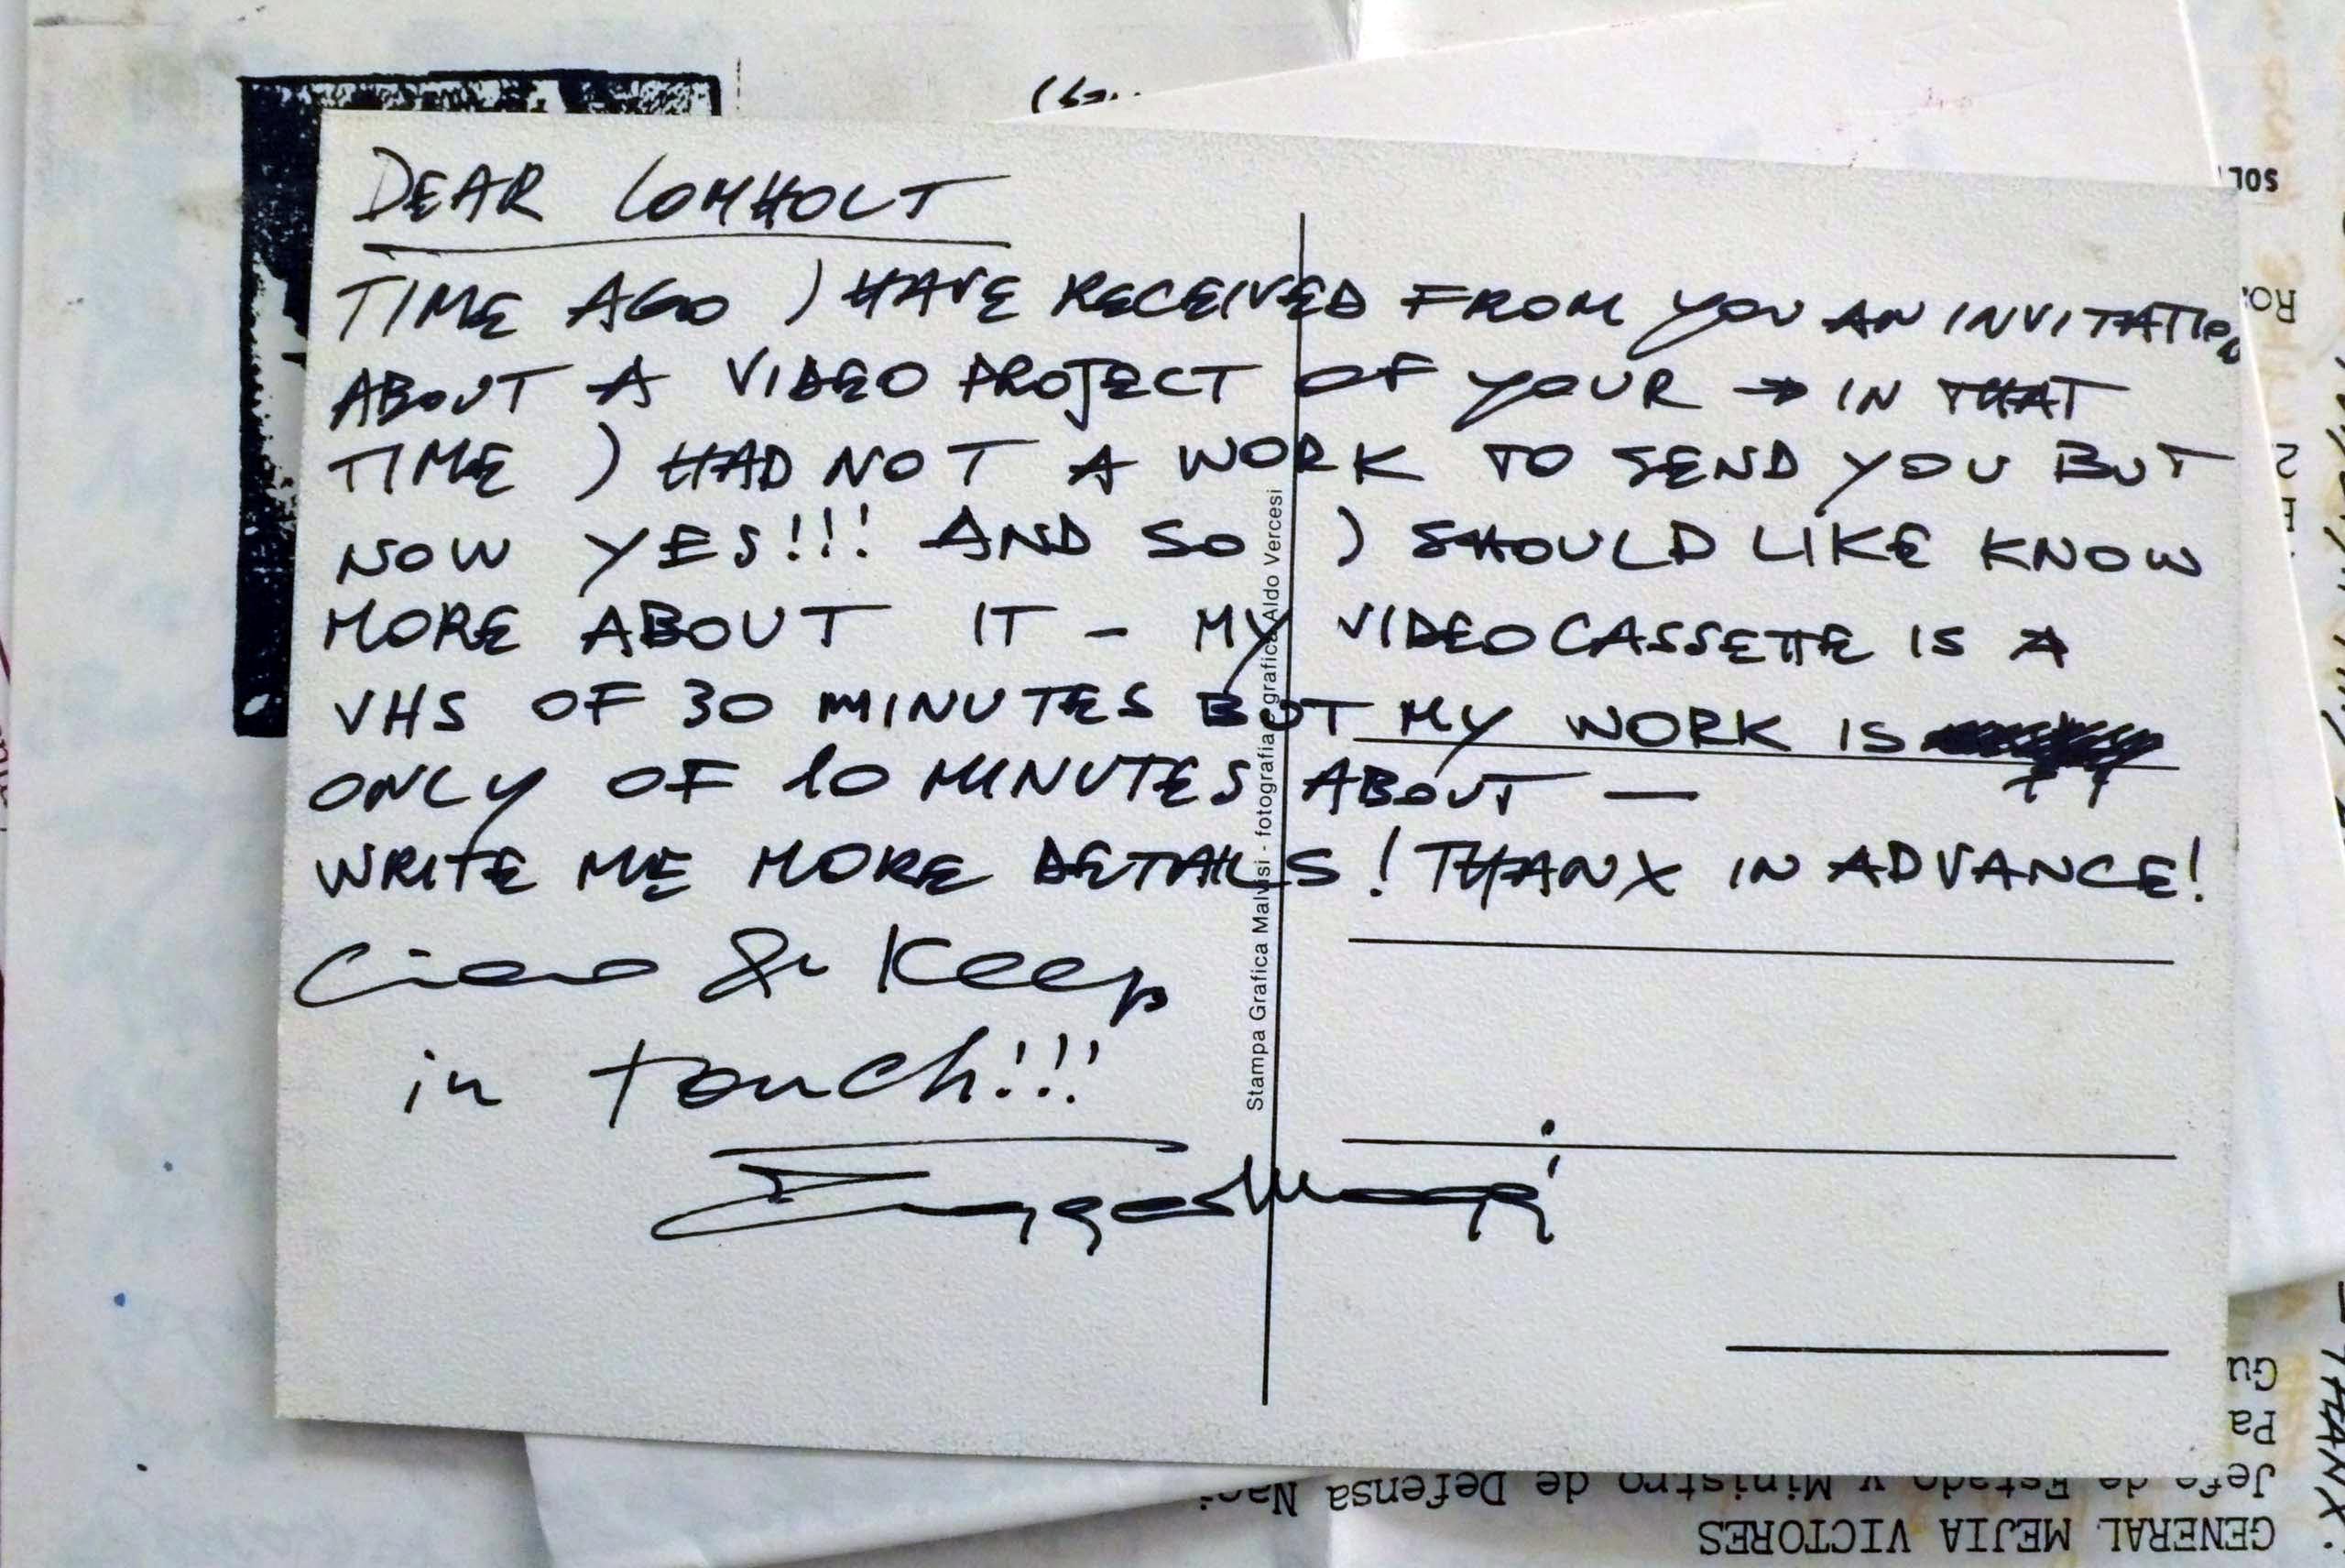 DEAR LOMHOLT
TIME AGO I HAVE RECEIVED FROM YOU AN INVITATION
ABOUT A VIDEO PROJECT OF YOUR → IN THAT
TIME I HAD NOT A WORK TO SEND YOU BUT
NOW YES!!! AND SO I SHOULD LIKE KNOW
MORE ABOUT IT - MY VIDEOCASSETTE IS A
VHS OF 30 MINUTES BUT MY WORK IS
ONLY OF 10 MINUTES ABOUT —
WRITE ME MORE DETAILS! THANX IN ADVANCE!
Ciao & Keep
in touch!!!
Stampa Grafica Malvisi - fotografia e grafica Aldo Vercesi
SOL
Ro
2
Gu
Pa
Jefe de Estado y Ministro de Defensa Naci
GENERAL MEJIA VICTORES
THANX.